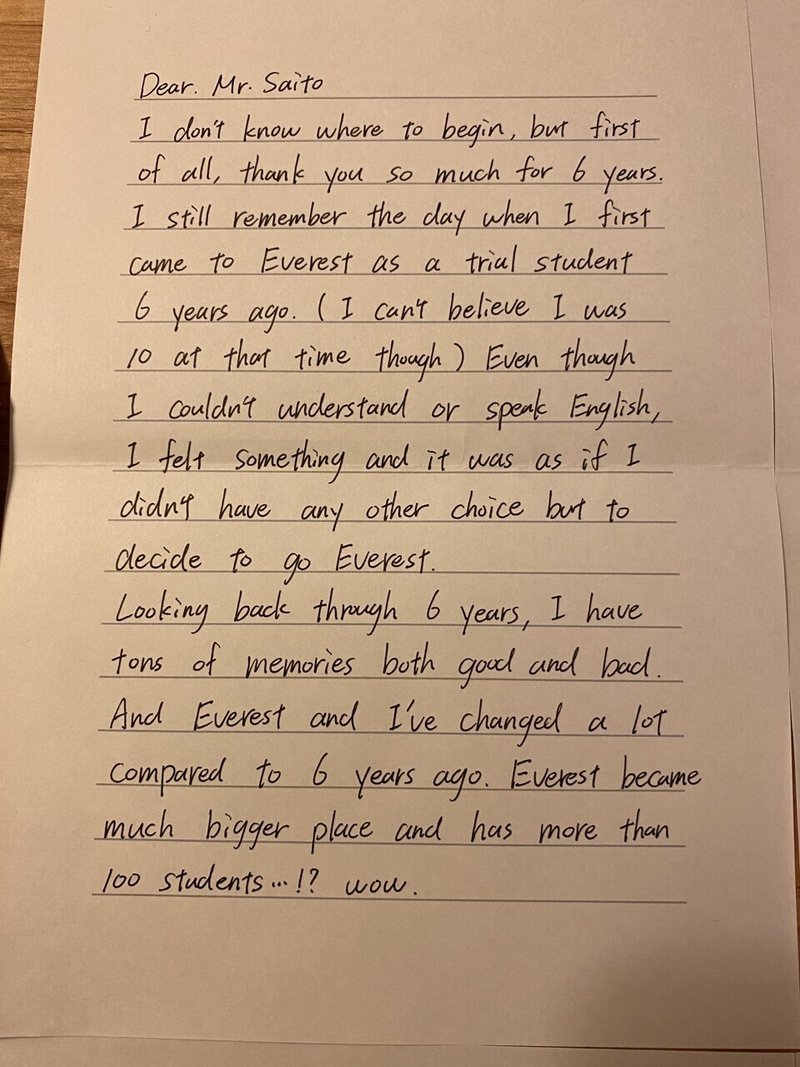 Dear. Mr. Saito
I don't know where to begin, but first
of all, thank you so much for 6 years.
I still remember the day when I first
came to Everest as a trial student
6 years ago. ( I can't believe I was
10 at that time though ) Even though
I couldn't understand or speak English,
I felt something and it was as if I
didn't have any other choice but to
decide to go Everest.
Looking back through 6 years, I have
tons of memories both good and bad.
And Everest and I've changed a lot
compared to 6 years ago. Everest became
much bigger place and has more than
100 students...!? wow.